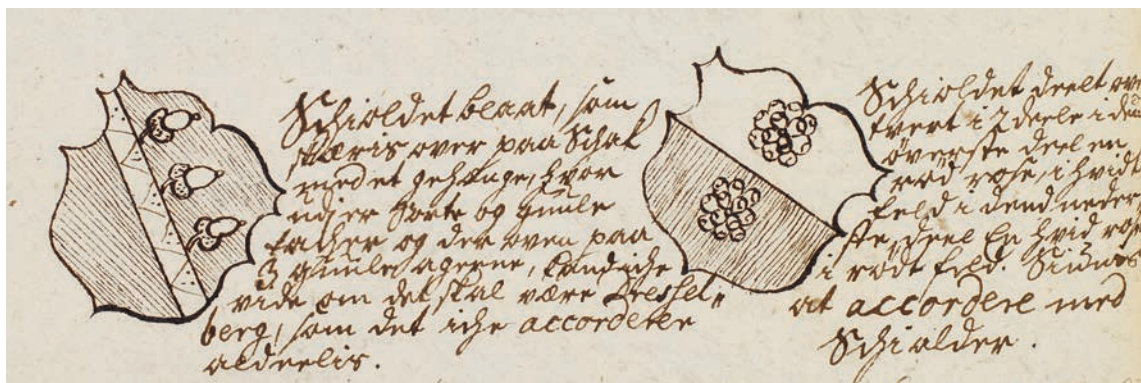 Schioldet blaat, som
skæris over paa Schak
med et gehænge, hvor
udj er Sorte og guule
tacher og der oven paa
3 guule agerne, kand iche
vide om det skal være Dressel„
berg, som det iche accorderer
aldeelis.
Schioldet deelt ove
tvert i 2 deele i den
øverste deel en
rød rose, i hvidt
feld i dend neder
ste, deel En hvid rose
i rødt feld. Siunes
at accordere med
Schialder.